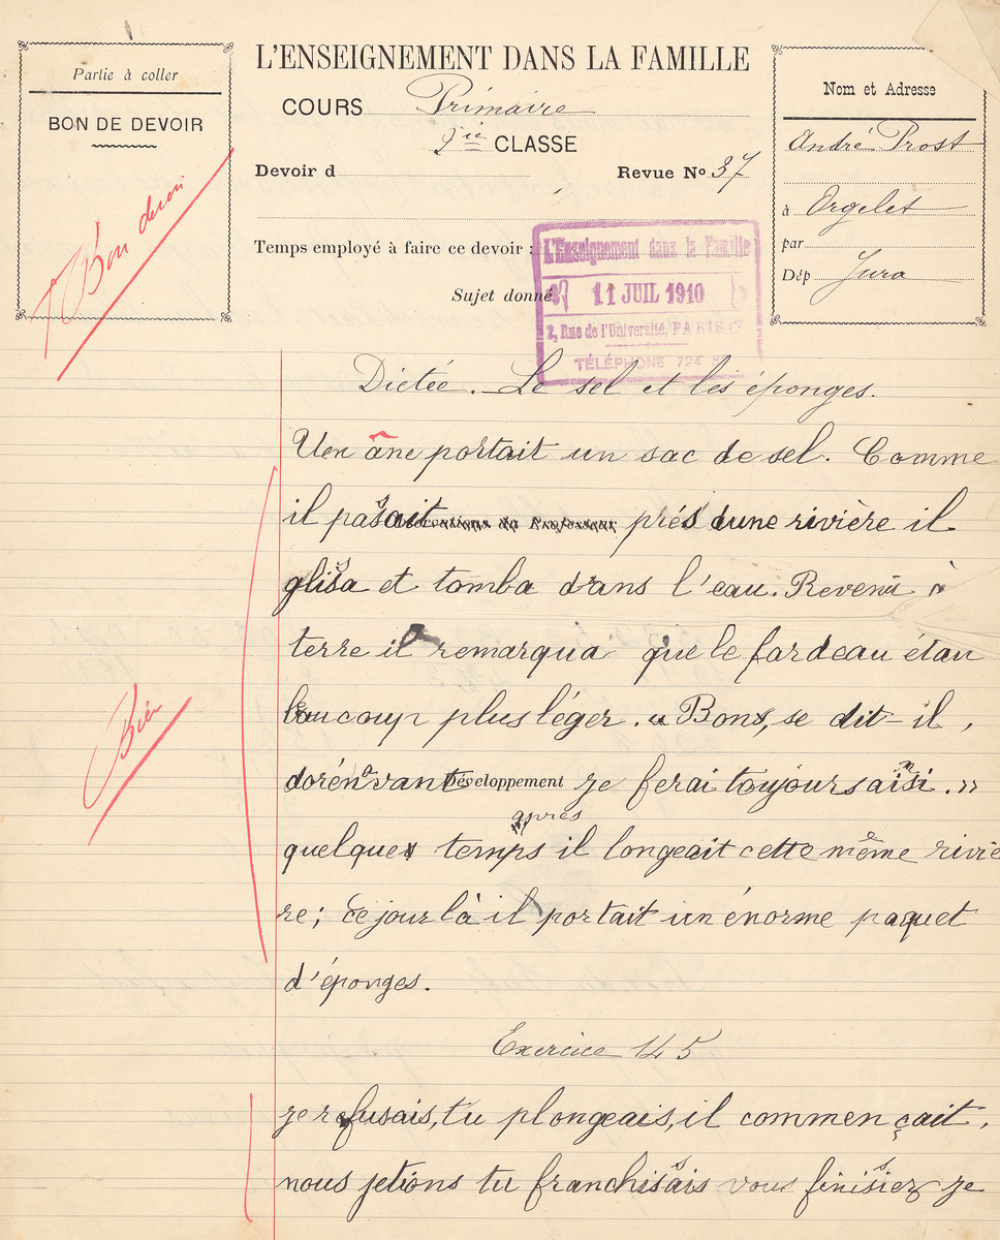 Partie à coller
BON DE DEVOIR
Bon devoir
L'ENSEIGNEMENT DANS LA FAMILLE
COURS Primaire
9ie CLASSE
Devoir d
Revue No 37
Temps employé à faire ce devoir :
Sujet donné
Nom et Adresse
André Prost
à Orgelet
par
Dép Jura
L'Enseignement dans la Famille
11 JUIL 1910
2, Rue de l'Université, PARIS (7
TÉLÉPHONE 724
Dictée. Le sel et les éponges.
Un âne portait un sac de sel. Comme
il passait Observations du Professeur près d'une rivière il
glissa et tomba dans l'eau. Revenu à
terre il remarqua que le fardeau étai
beaucoup plus léger. « Bon, se dit-il,
dorénavant Développement je ferai toujours ainsi. »
après
quelque temps il longeait cette même riviè
re; ce jour là il portait un énorme paquet
d'éponges.
Bien
Exercice 145
je refusais, tu plongeais, il commençait,
nous jetions tu franchissais vous finissiez je